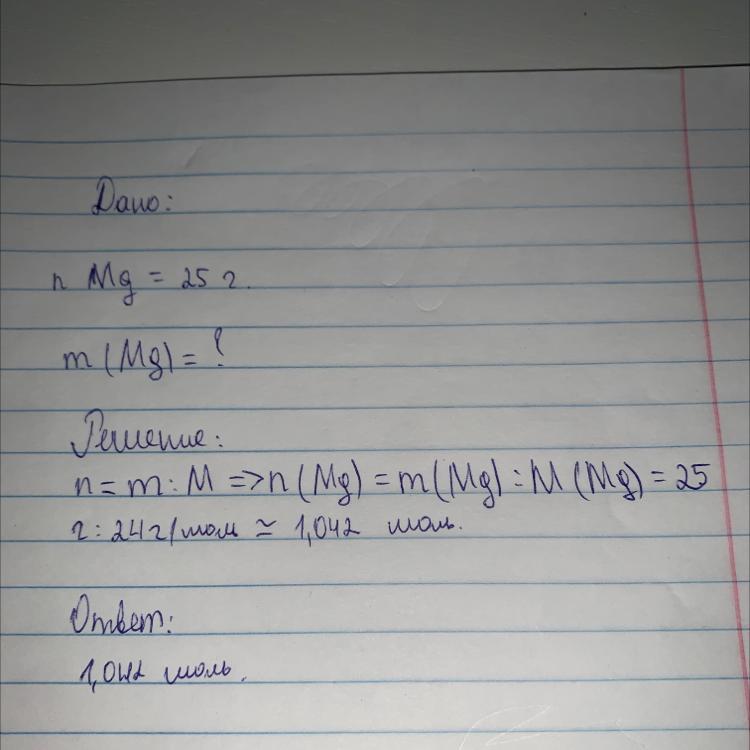 Дано:
n Mg = 25 г.
m (Mg) = ?
Решение:
n = m : M => n (Mg) = m (Mg) : M (Mg) = 25
г : 24 г/моль ≃ 1,042 моль.
Ответ:
1,042 моль.